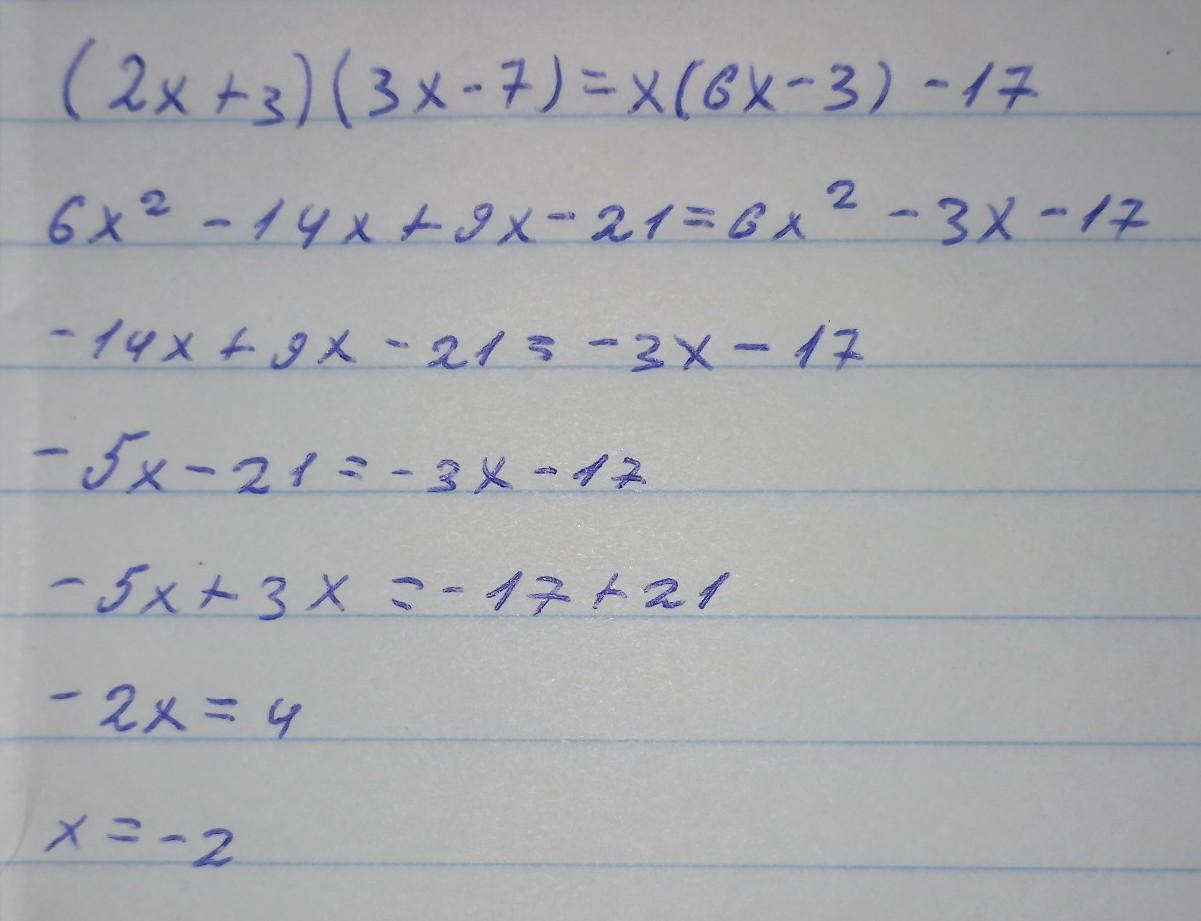 (2x+3)(3x-7)=x(6x-3)-17
6x² -14x+9x-21=6x² -3x-17
-14x+9x-21=-3x-17
-5x-21=-3x-17
-5x+3x=-17+21
-2x=4
x=-2